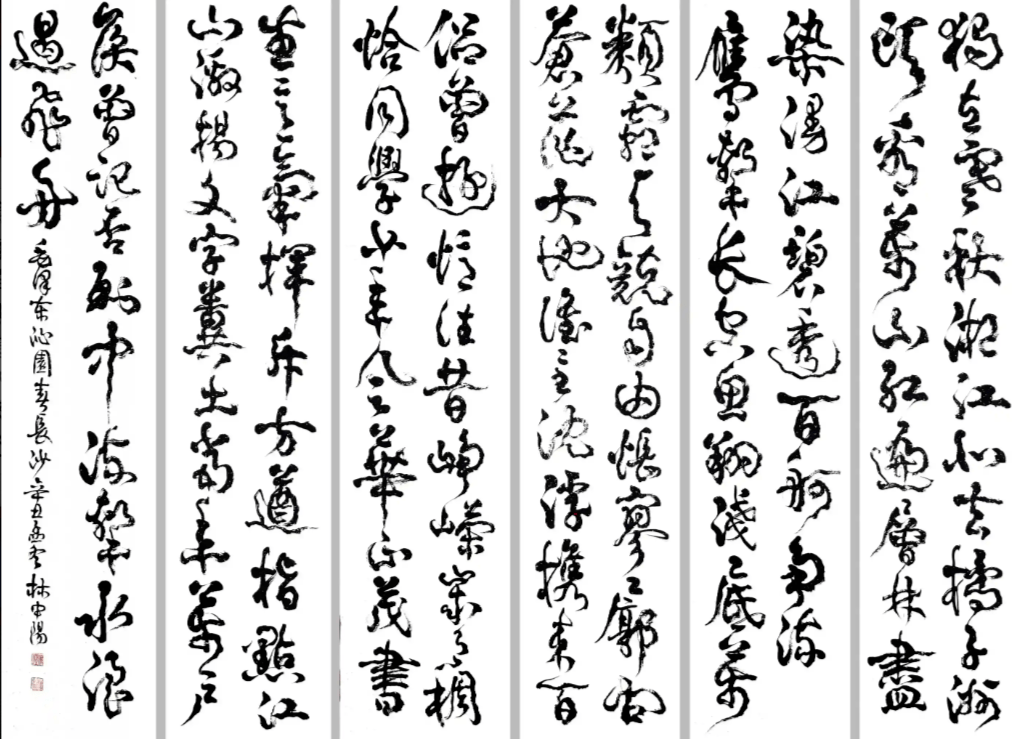 獨立寒秋湘江北去橘子洲
頭看萬山紅遍層林盡
染漫江碧透百舸爭流
鷹擊長空魚翔淺底萬
類霜天競自由悵寥廓問
蒼茫大地誰主沈浮攜來百
侶曾遊憶往昔崢嶸歲月稠
恰同學少年風華正茂書
生意氣揮斥方遒指點江
山激揚文字糞土當年萬戶
侯曾記否到中流擊水浪
遏飛舟
毛澤東沁園春長沙辛丑 林中陽